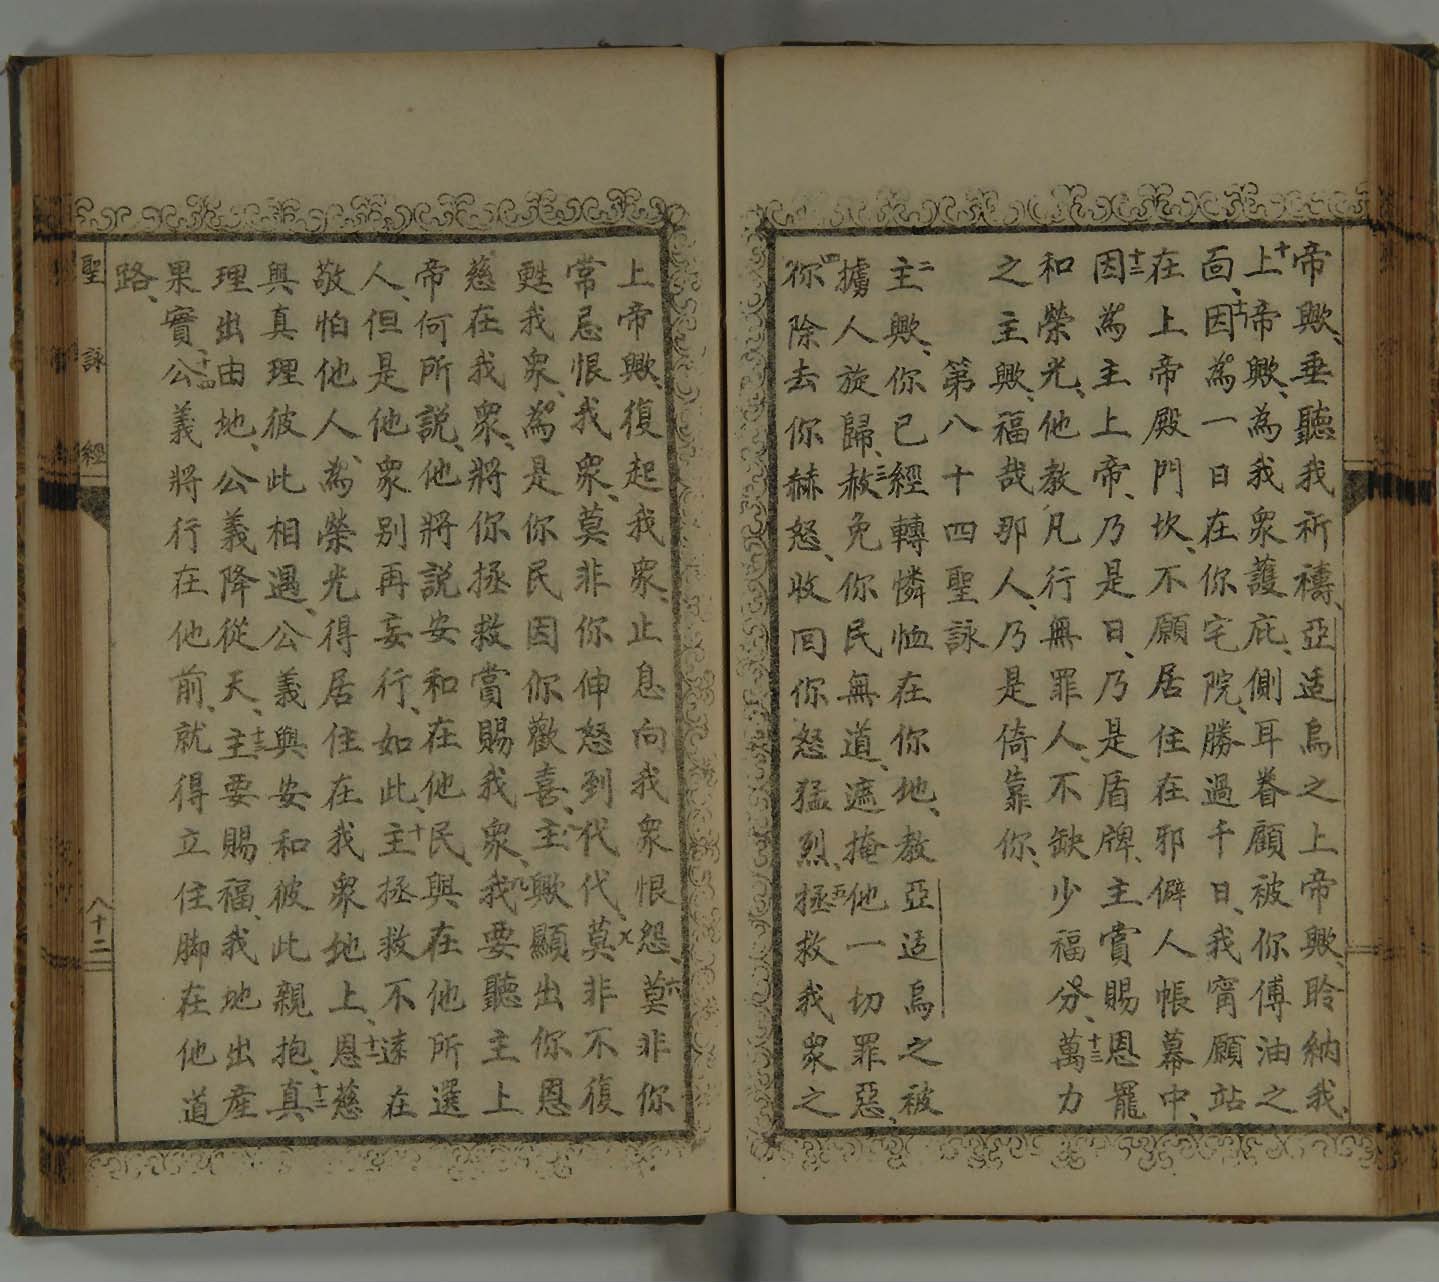 帝歟、垂聽我祈禱、亞适烏之上帝歟、聆納我、
十上帝歟、為我衆護庇、側耳眷顧被你傅油之
面、十一因為一日在你宅院、勝過千日、我甯願站
在上帝殿門坎、不願居住在邪僻人帳幕中、
十二因為主上帝、乃是日、乃是盾牌、主賞賜恩寵
和榮光、他教凡行無罪人、不缺少福分、十三萬力
之主歟、福哉那人、乃是倚靠你、
第八十四聖詠
二主歟、你已經轉憐恤在你地、教亞适烏之被
擄人旋歸、三赦免你民無道、遮掩他一切罪惡、
四你除去你赫怒、收回你怒猛烈、五拯救我衆之
上帝歟、復起我衆、止息向我衆恨怨、六莫非你
常忌恨我衆、莫非你伸怒到代代、七莫非不復
甦我衆、為是你民因你歡喜、八主歟、顯出你恩
慈在我衆、將你拯救賞賜我衆、九我要聽主上
帝何所説、他將説安和在他民、與在他所選
人、但是他衆別再妄行、如此、十主拯救不遠在
敬怕他人、為榮光得居住在我衆地上、十一恩慈
與真理彼此相遇、公義與安和彼此親抱、十二真
理出由地、公義降從天、十三主要賜福、我地出產
果實、十四公義將行在他前、就得立住脚在他道
路、
聖詠經
八十二